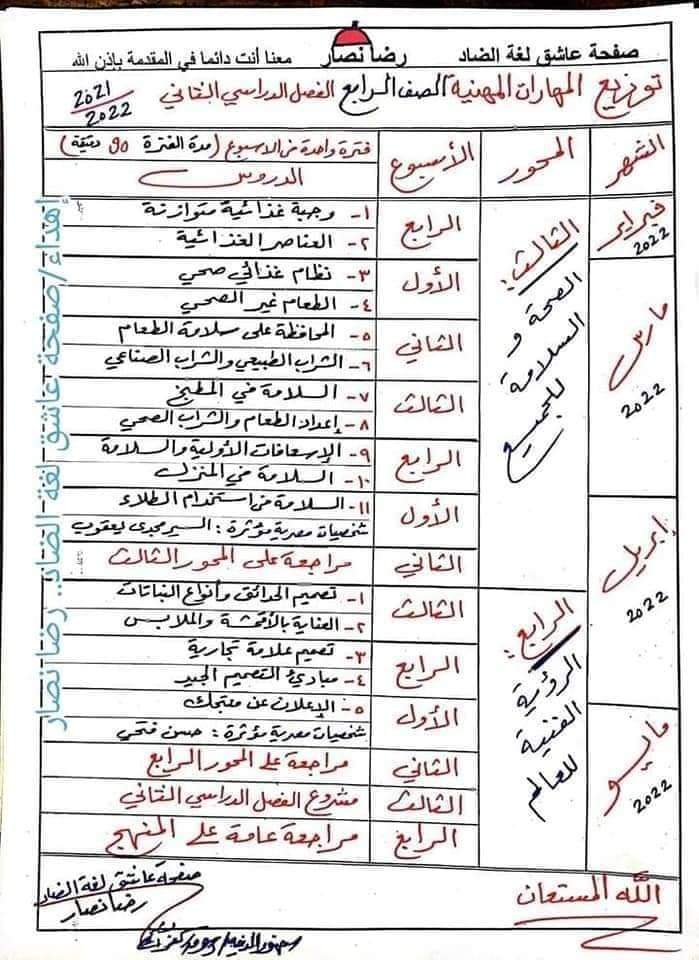 صفحة عاشق لغة الضاد رضا نصار معنا أنت دائما في المقدمة بإذن الله
توزيع المهارات المهنية الصف الرابع الفصل الدراسي الثاني 2021 2022
الشهر المحور الأسبوع فترة واحدة من الاسبوع (مدة الفترة 90 دقيقة)
الدروس
فبراير 2022
الثالث: الصحة والسلامة للجميع
الرابع
١- وجبة غذائية متوازنة
٢- العناصر الغذائية
مارس 2022
الأول
٣- نظام غذائي صحي
٤- الطعام غير الصحي
الثاني
٥- المحافظة على سلامة الطعام
٦- الشراب الطبيعي والشراب الصناعي
الثالث
٧- السلامة في المطبخ
٨- إعداد الطعام والشراب الصحي
الرابع
٩- الإسعافات الأولية والسلامة
١٠- السلامة في المنزل
إبريل 2022
الأول
١١- السلامة في استخدام الطلاء
شخصيات مصرية مؤثرة: السير مجدى يعقوب
الثاني
مراجعة على المحور الثالث
الرابع: الرؤية الفنية للعالم
الثالث
١- تصميم الحدائق وأنواع النباتات
٢- العناية بالأقمشة والملابس
الرابع
٣- تصميم علامة تجارية
٤- مبادئ التصميم الجيد
مايو 2022
الأول
٥- الإعلان عن منتجك
شخصيات مصرية مؤثرة: حسن فتحي
الثاني
مراجعة على المحور الرابع
الثالث
مشروع الفصل الدراسي الثاني
الرابع
مراجعة عامة على المنهج
الله المستعان
صفحة عاشق لغة الضاد
رضا نصار
إهداء/صفحة عاشق لغة الضاد.. رضا نصار